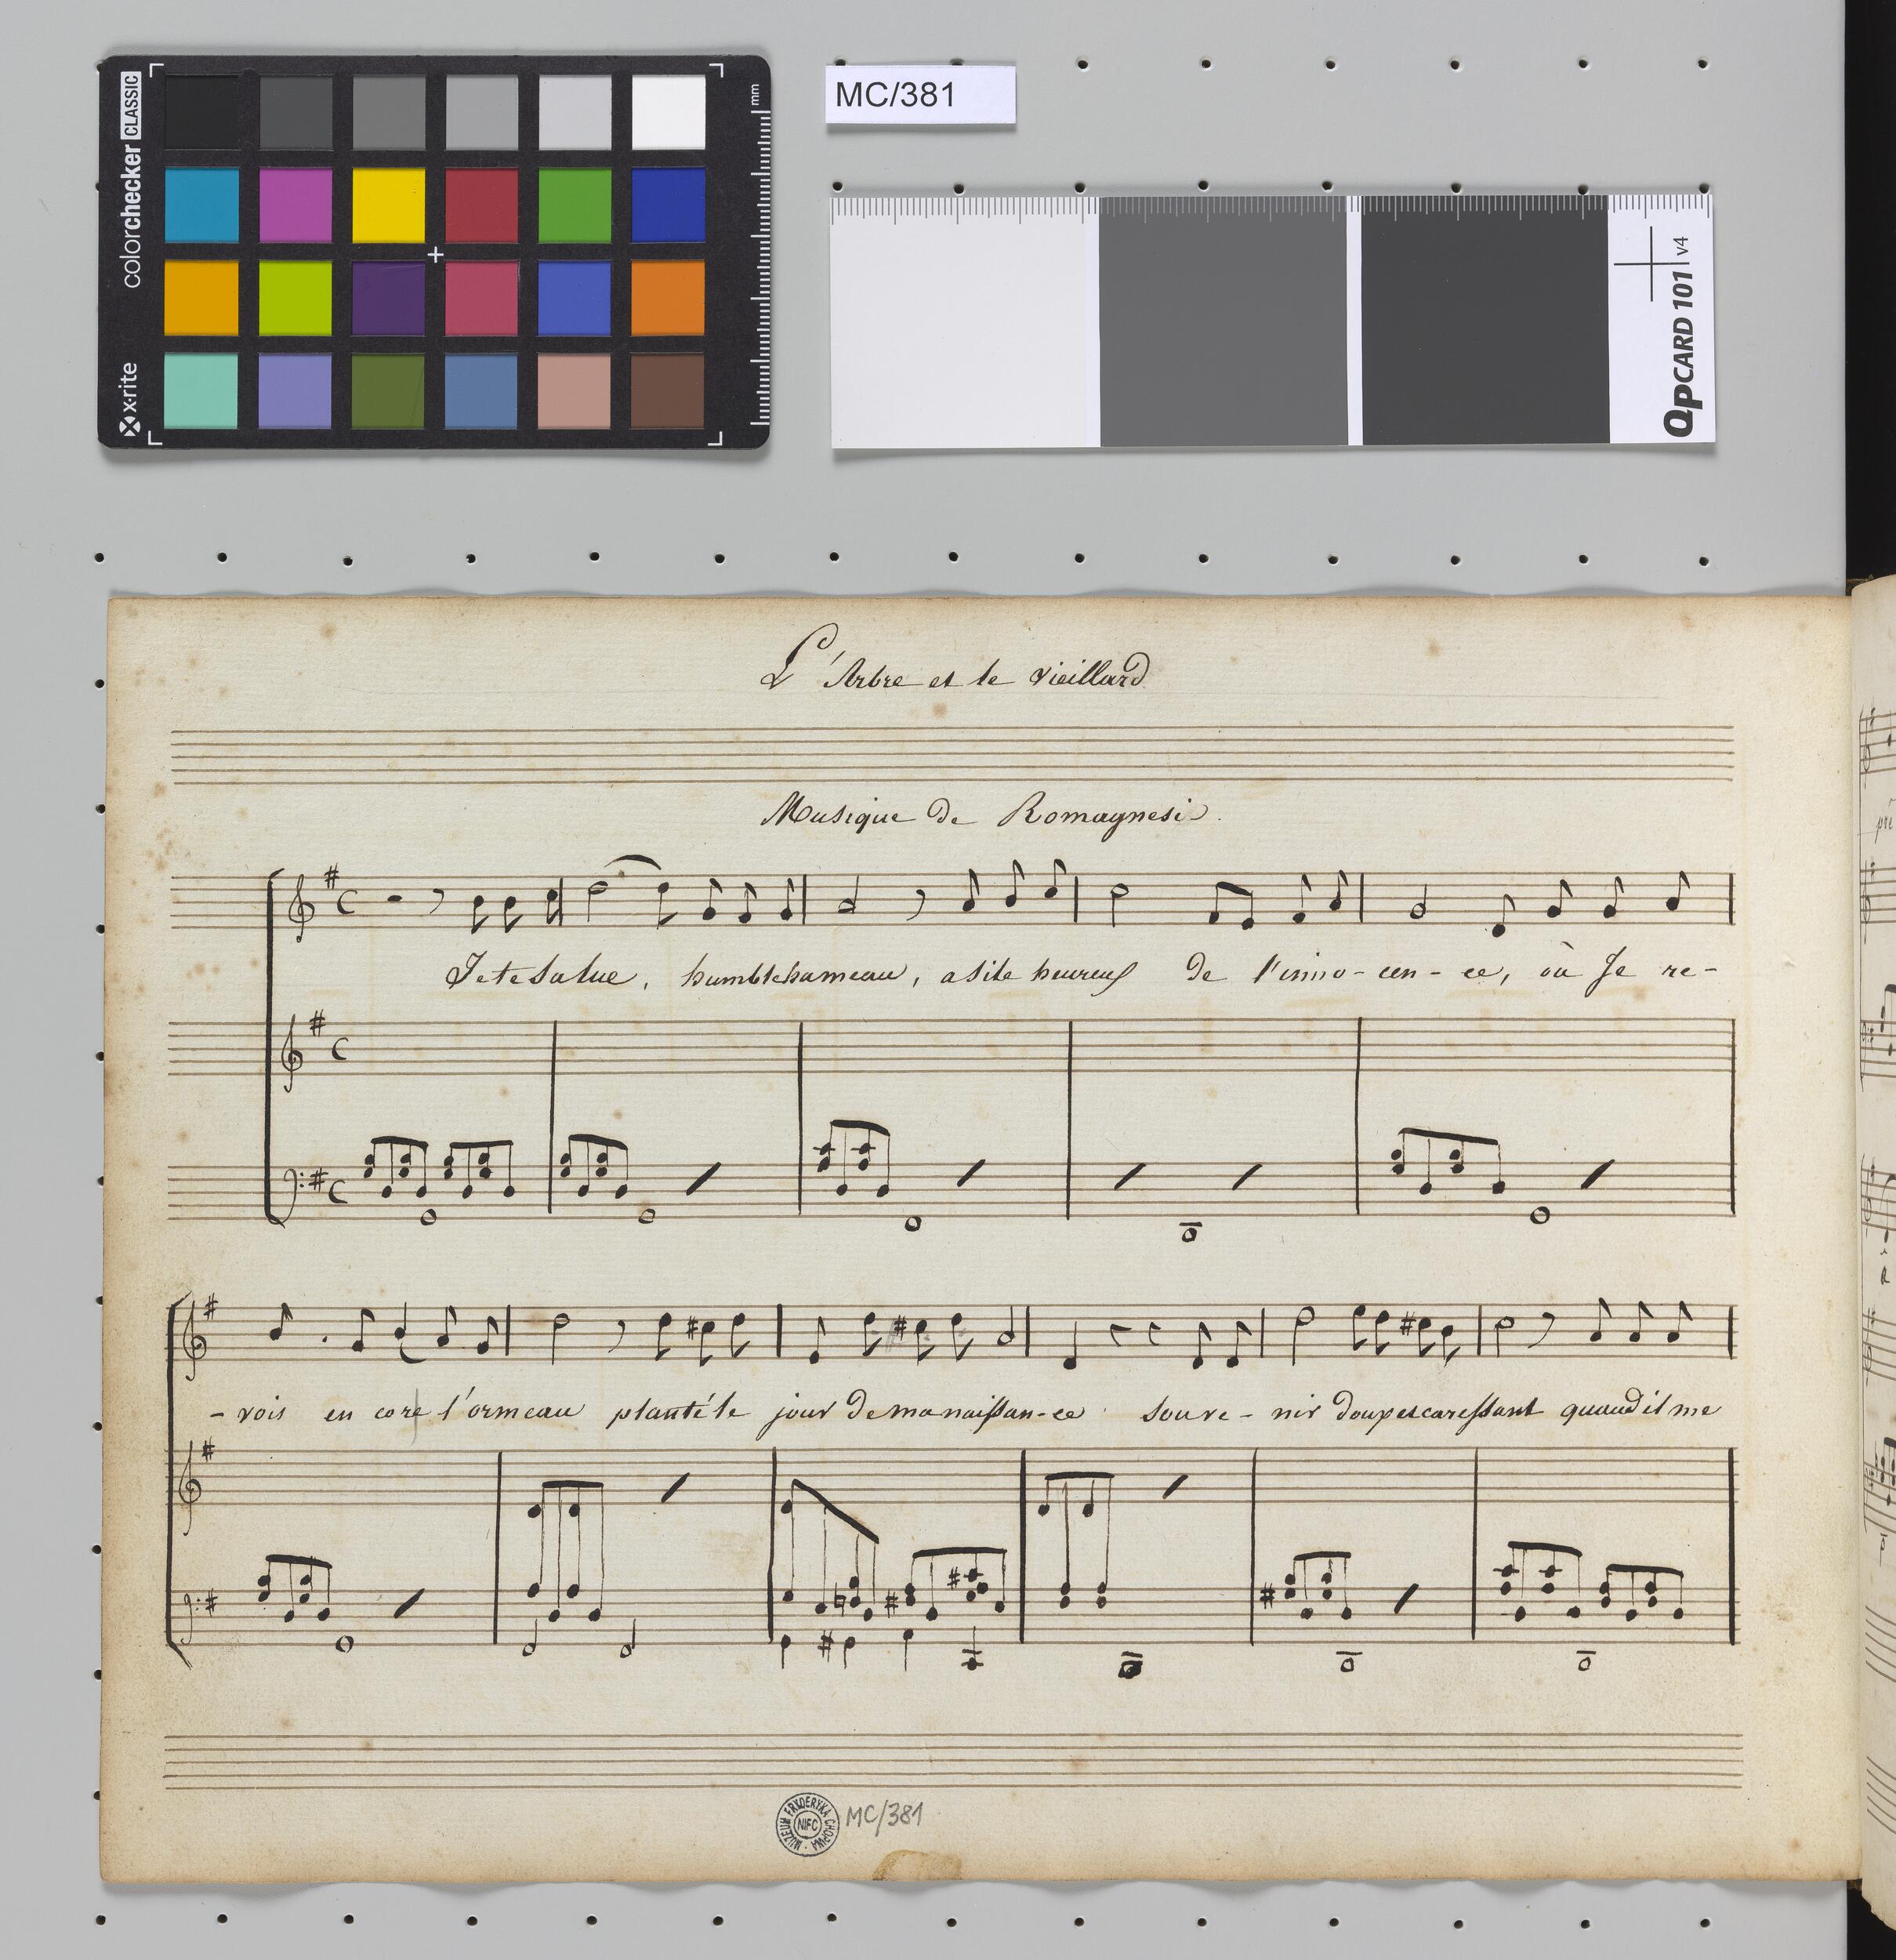 colorchecker CLASSIC
x-rite
mm
MC/381
QPCARD 101 v4
L'Arbre et le vieillard
Musique de Romagnesi.
Je te salue, humble hameau, asile heureux de l'inno-cen-ce, où Je re-
-vois en core l'ormeau planté le jour de ma naissan-ce souve-nir doux et caressant quand il me
MUZEUM FRYDERYKA CHOPINA
NIFC
MC/381